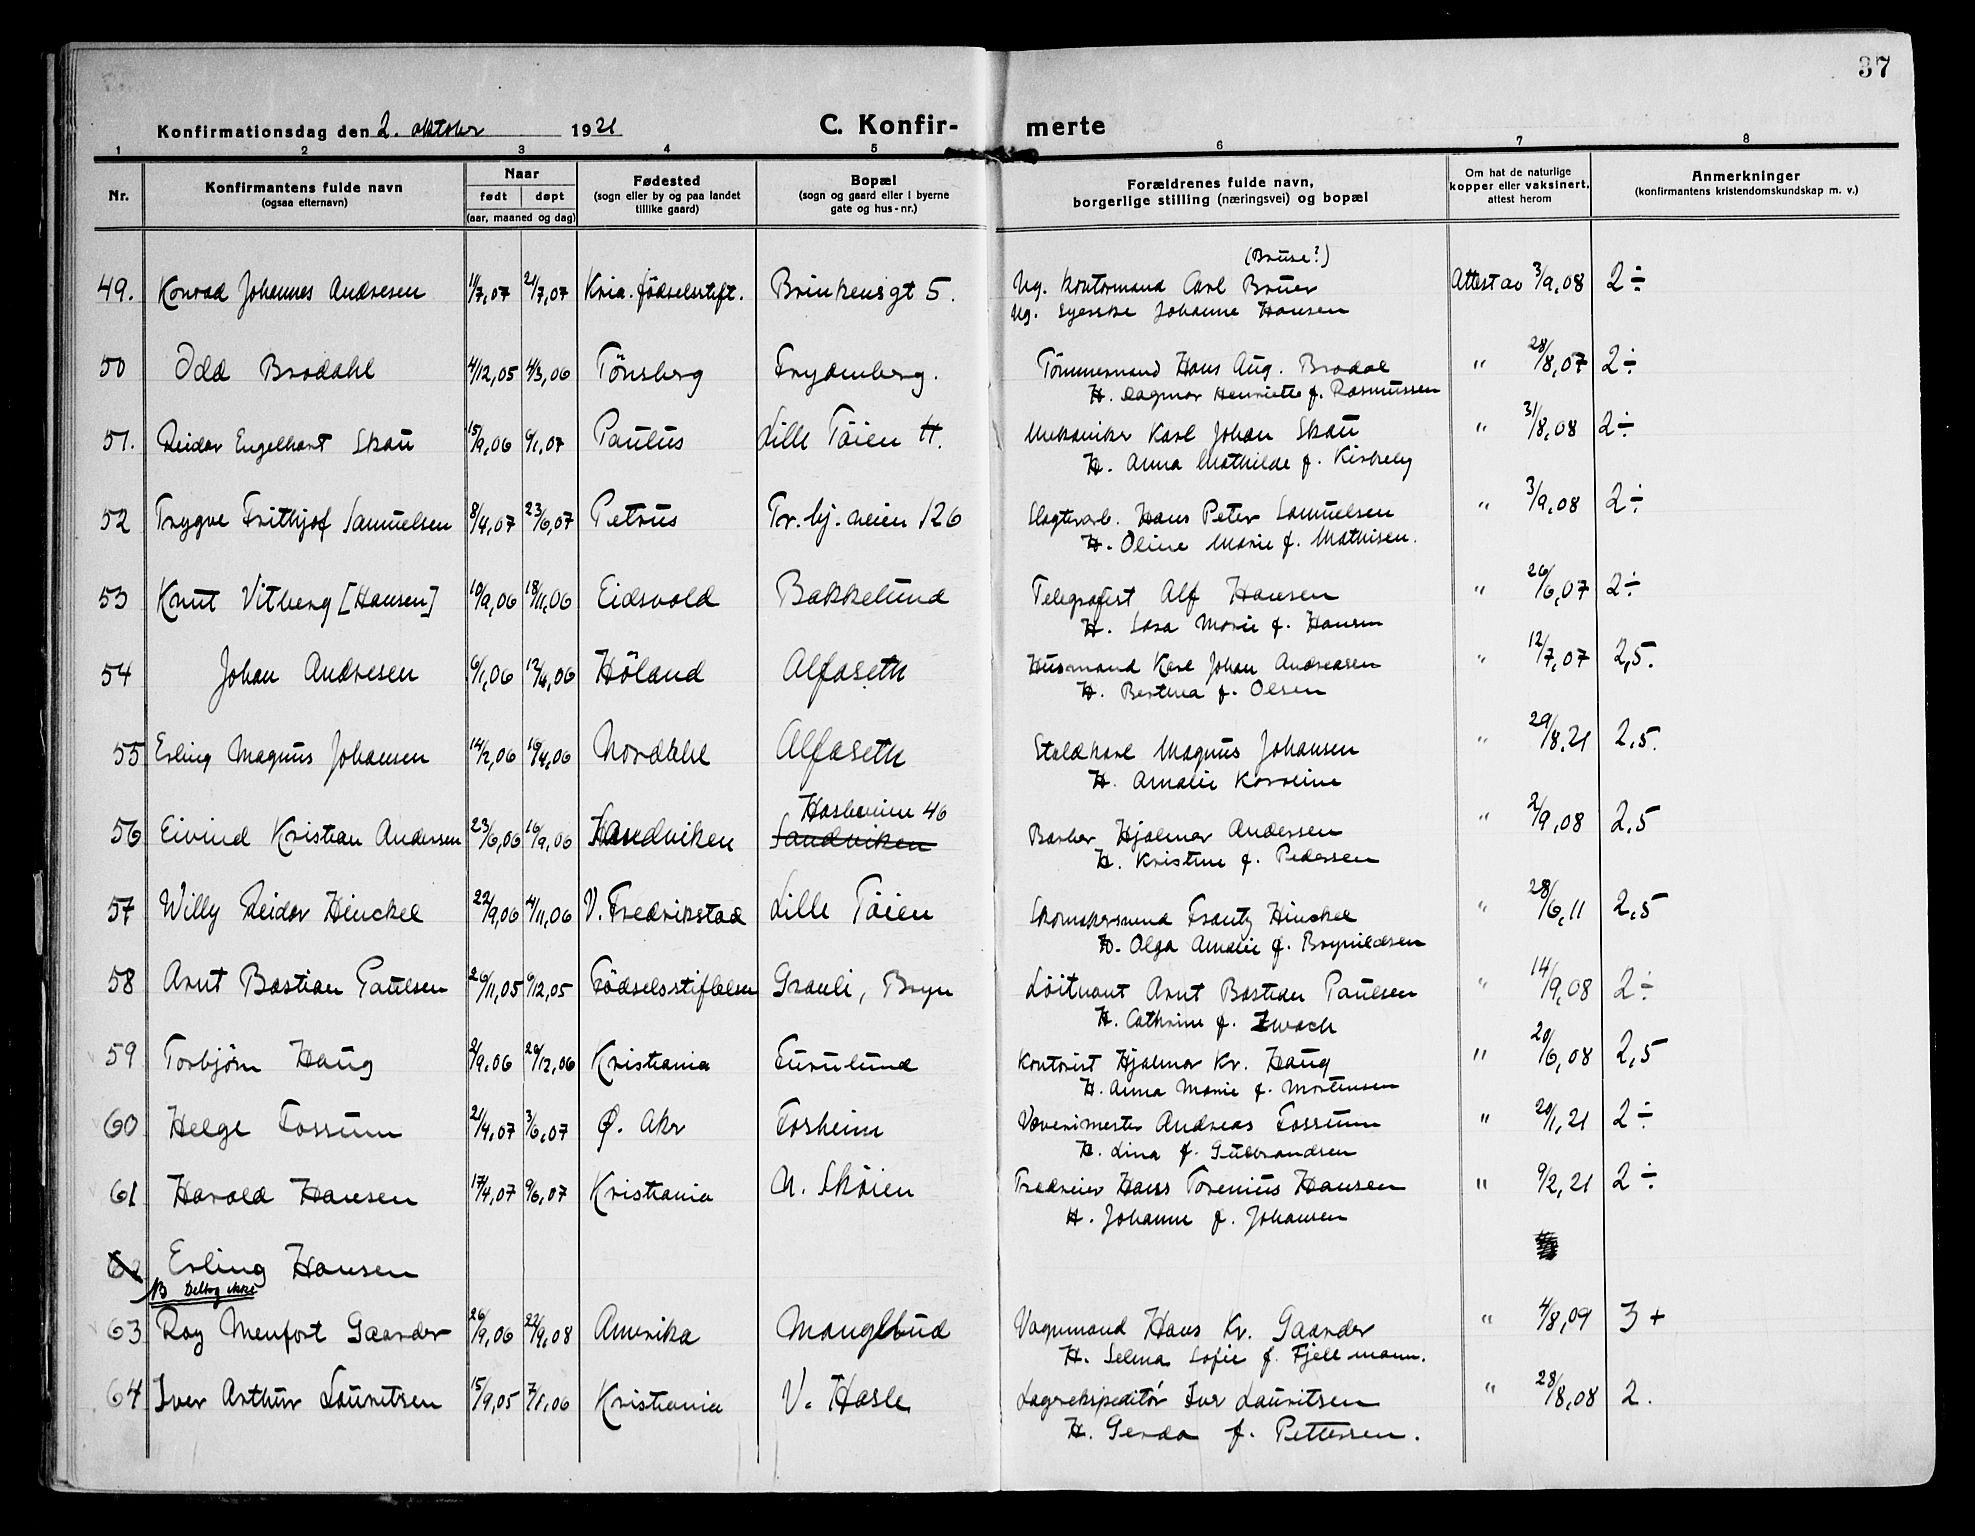 37
Konfirmationsdag den 2. oktober 1921
C. Konfir- merte
1 2 3 4 5 6 7 8
Nr.
Konfirmantens fulde navn
(ogsaa efternavn)
Naar
født døpt
(aar, maaned og dag)
Fødested
(sogn eller by og paa landet
tillike gaard)
Bopæl
(sogn og gaard eller i byerne
gate og hus-nr.)
Forældrenes fulde navn,
borgerlige stilling (næringsvei) og bopæl
Om hat de naturlige
kopper eller vaksinert,
attest herom
Anmerkninger
(konfirmantens kristendomskundskap m. v.)
(Bruse?)
49. Konrad Johannes Andresen 11/7,07 21/7,07 Kria. fødselsstift. Brinkensgt 5. Ug. kontormand Carl Bruer Attest av 3/9,08 2÷
Ug. syerske Johanne Hansen
50 Odd Brodahl 4/12,05 4/3,06 Tönsberg Frydenberg. Tømmermand Hans Aug. Brodal " 28/8,07 2÷
H. Dagmar Henriette f. Rasmussen
51. Reidar Engelhart Skau 15/9,06 6/1,07 Paulus Lille Töien H. Mekaniker Karl Johan Skau " 31/8,08 2÷
H. Anna Mathilde f. Kirkeby
52 Trygve Frithjof Samuelsen 8/4,07 23/6,07 Petrus Tr.hj.veien 126 Slagterarb. Hans Peter Samuelsen " 3/9,08 2÷
H. Oline Marie f. Mathisen.
53 Knut Vitberg [Hansen] 10/9,06 18/11,06 Eidsvold Bakkelund Telegrafist Alf Hansen " 26/6,07 2÷
H. Lara Marie f. Hansen
54 Johan Andresen 6/1,06 12/4,06 Höland Alfaseth Husmand Karl Johan Andreasen " 12/7,07 2,5.
H. Bertina f. Olsen
55 Erling Magnus Johansen 14/2,06 16/4,06 Nordahl Alfaseth Staldkarl Magnus Johansen " 29/8,21 2,5.
H. Amalie Karoline
Hasleveien 46
56 Eivind Kristian Andersen 23/6,06 16/9,06 Sandviken Sandviken Barber Hjalmar Andersen " 2/9,08 2,5
H. Kristine f. Pedersen
57 Willy Reidar Hinckel 22/9,06 4/11,06 V. Fredrikstad Lille Töien Skomakersvend Frantz Hinckel " 28/6,11 2,5
H. Olga Amalie f. Brynildsen
58 Arnt Bastian Paulsen 26/11,05 6/12,05 Fødselsstiftelsen Granli, Bryn Löitnant Arnt Bastian Paulsen " 14/9,08 2÷
H. Cathrine f. Zwach
59 Torbjörn Haug 2/9,06 26/12,06 Kristiania Furulund Kontorist Hjalmar Kr. Haug " 20/6,08 2,5
H. Anna Marie f. Mortensen
60 Helge Fossum 21/4,07 3/6,07 Ø. Akr Forheim Væverimester Andreas Fossum " 20/1,21 2÷
H. Lina f. Gulbrandsen
61 Harald Hansen 17/4,07 9/6,07 Kristiania N. Sköien Trædreier Hans Torenius Hansen " 9/2,21 2÷
H. Johanne f. Johansen
62 Erling Hansen
NB Deltog ikke
63 Roy Menfort Gaarder 26/9,06 22/9,08 Amerika Manglerud Vognmand Hans Kr. Gaarder " 4/8,09 3+
H. Selma Sofie f. Fjellmann.
64 Iver Arthur Lauritsen 15/9,05 7/1,06 Kristiania V. Hasle Lagerekspeditör Iver Lauritsen " 28/8,08 2.
H. Gerda f. Pettersen.